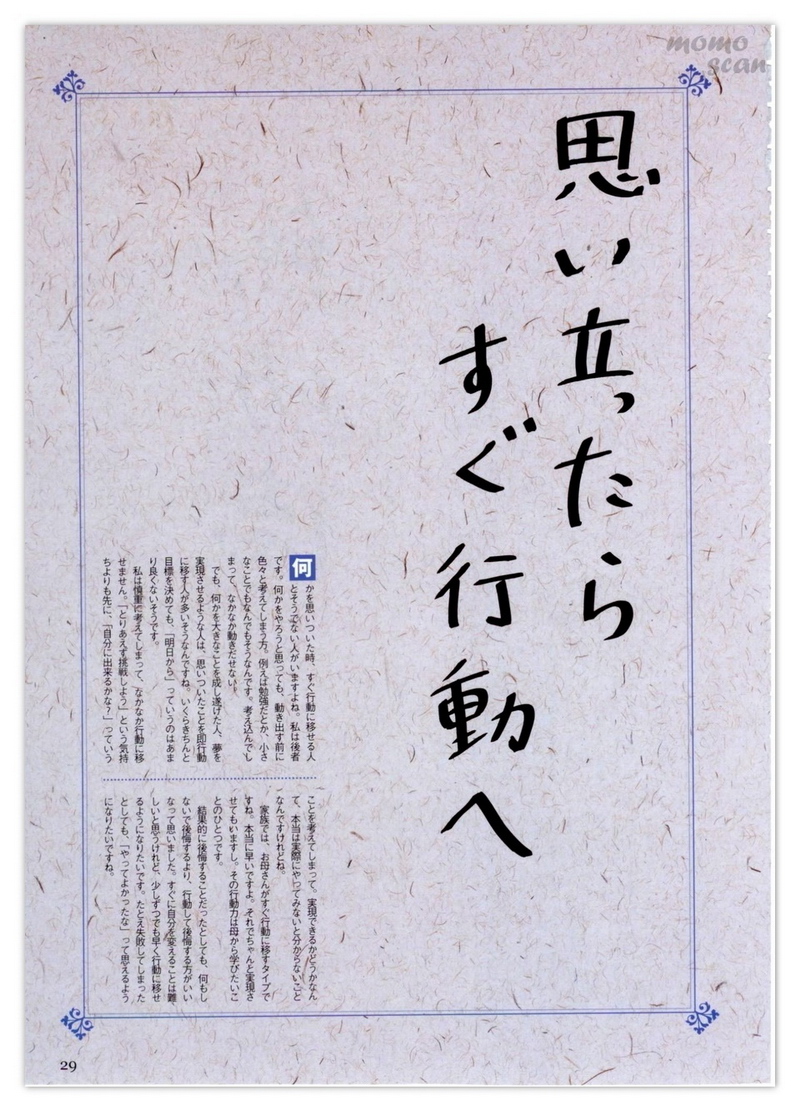 momo
scan
思い立ったら
すぐ行動へ
何かを思いついた時、すぐ行動に移せる人
とそうでない人がいますよね。私は後者
です。何かをやろうと思っても、動き出す前に
色々と考えてしまう方。例えば勉強だとか、小さ
なことでもなんでもそうなんです。考え込んでし
まって、なかなか動きだせない。
でも、何かを大きなことを成し遂げた人、夢を
実現させるような人は、思いついたことを即行動
に移す人が多いそうなんですね。いくらきちんと
目標を決めても、「明日から」っていうのはあま
り良くないそうです。
私は慎重に考えてしまって、なかなか行動に移
せません。「とりあえず挑戦しよう」という気持
ちよりも先に、「自分に出来るかな？」っていう
ことを考えてしまって。実現できるかどうかなん
て、本当は実際にやってみないと分からないこと
なんですけれどね。
家族では、お母さんがすぐ行動に移すタイプで
すね。本当に早いですよ。それでちゃんと実現さ
せてもいますし。その行動力は母から学びたいこ
とのひとつです。
結果的に後悔することだったとしても、何もし
ないで後悔するより、行動して後悔する方がいい
なって思いました。すぐに自分を変えることは難
しいと思うけれど、少しずつでも早く行動に移せ
るようになりたいです。たとえ失敗してしまった
としても、「やってよかったな」って思えるよう
になりたいですね。
29